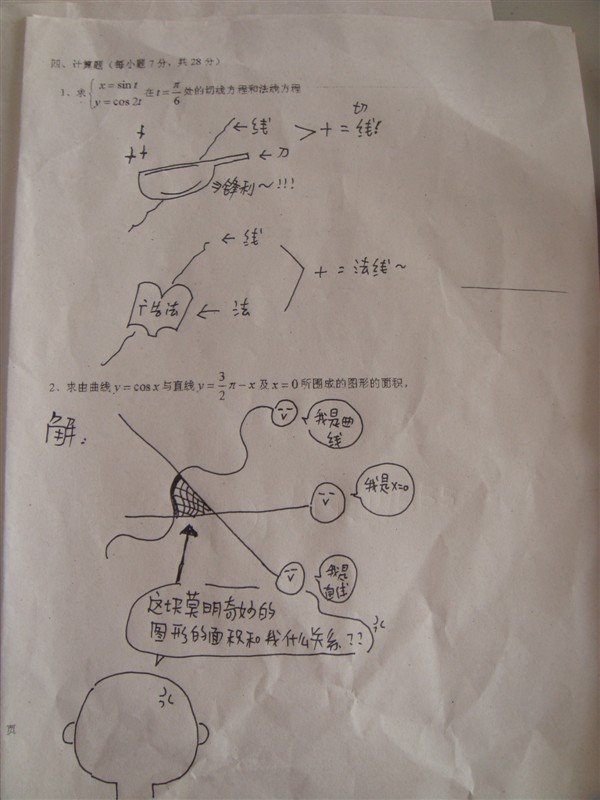 四、计算题（每小题7分，共28分）
1、求{x=sin t y=cos 2t 在t=π/6处的切线方程和法线方程
←线
切
>+=线!
←刀
⇒锋利~!!!
←线
+=法线~
广告法 ← 法
2、求由曲线y=cos x与直线y=3/2π-x及x=0所围成的图形的面积。
解：
我是曲
线
我是x=0
我是
直线
这块莫明奇妙的
图形的面积和我什么关系??
页